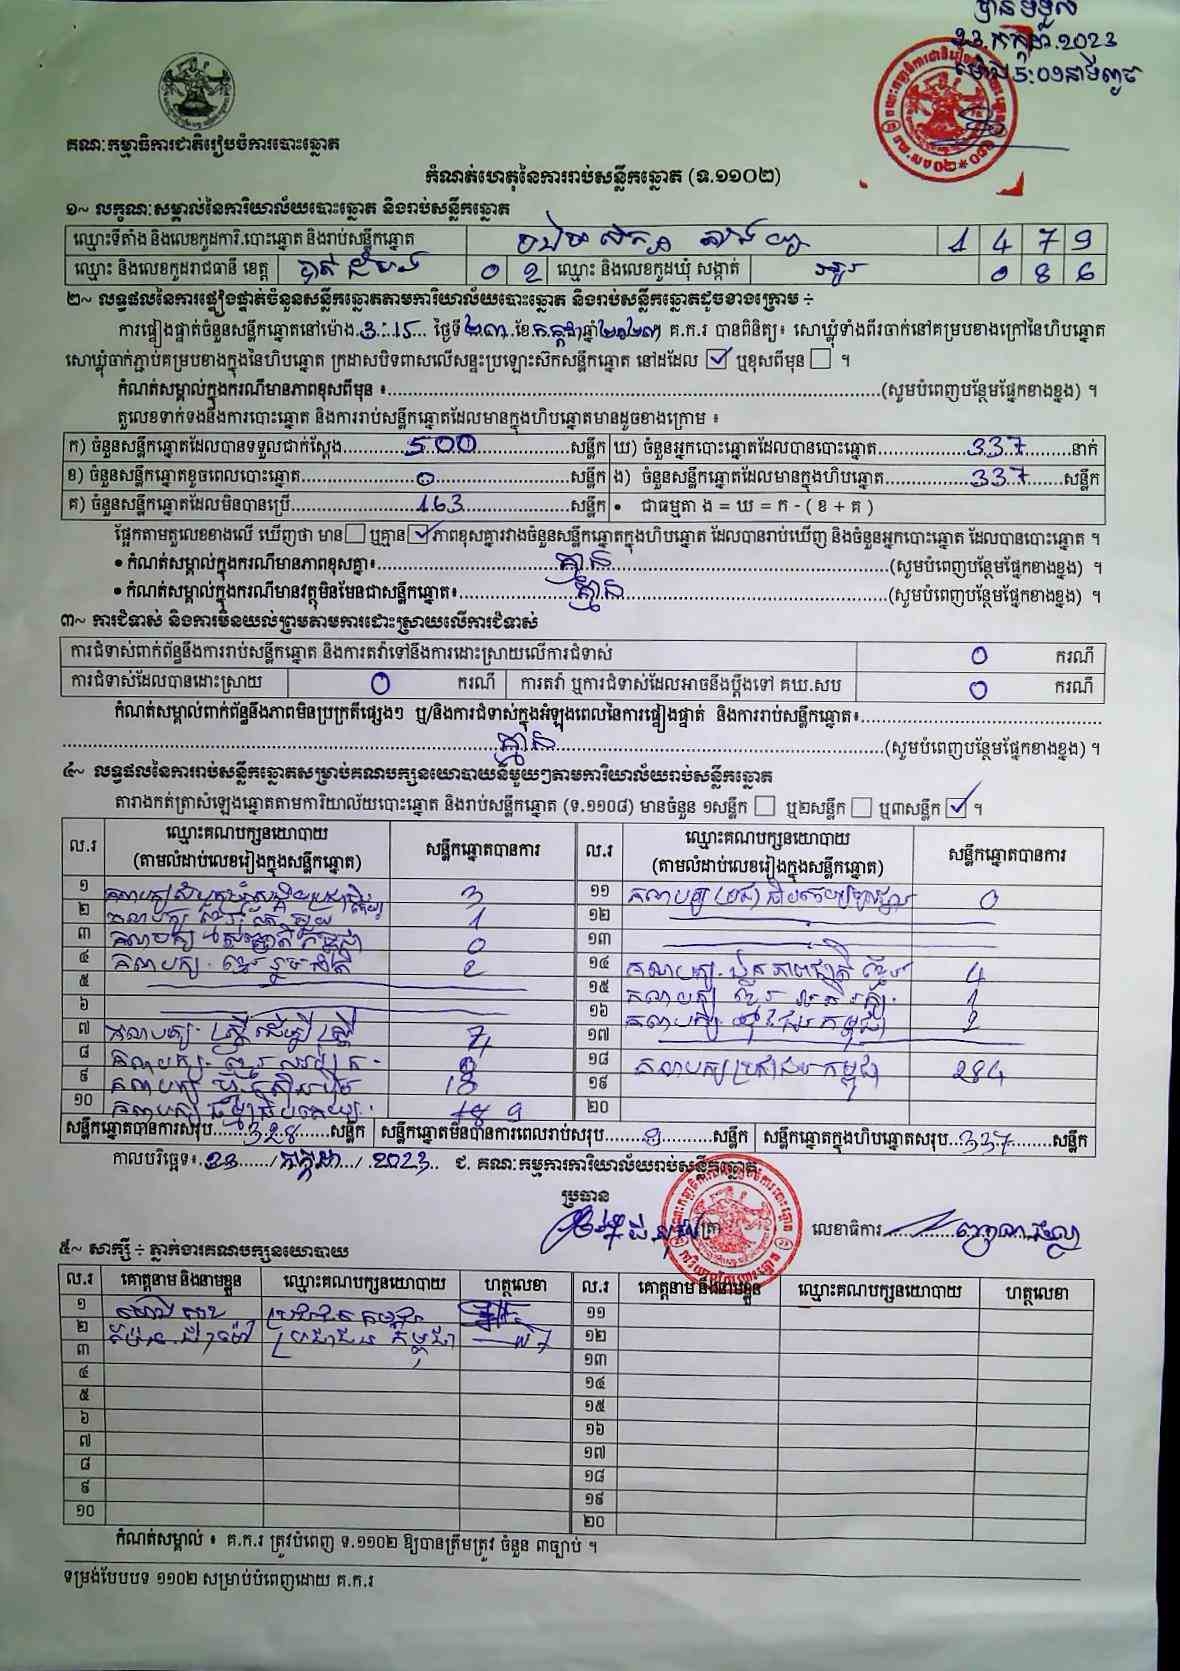 បានទទួល
23.កក្កដា.2023
គណៈកម្មាធិការជាតិរៀបចំការបោះឆ្នោត
កំណត់ហេតុនៃការរាប់សន្លឹកឆ្នោត (ទ.១១០២)
១~ លក្ខណៈសម្គាល់នៃការិយាល័យបោះឆ្នោត និងរាប់សន្លឹកឆ្នោត
ឈ្មោះទីតាំង និងលេខកូដការិ.បោះឆ្នោត និងរាប់សន្លឹកឆ្នោត 1 4 7 9
ឈ្មោះ និងលេខកូដរាជធានី ខេត្ត បាត់ដំបង 0 2 ឈ្មោះ និងលេខកូដឃុំ សង្កាត់ 0 8 6
២~ លទ្ធផលនៃការផ្ទៀងផ្ទាត់ចំនួនសន្លឹកឆ្នោតតាមការិយាល័យបោះឆ្នោត និងរាប់សន្លឹកឆ្នោតដូចខាងក្រោម ÷
ការផ្ទៀងផ្ទាត់ចំនួនសន្លឹកឆ្នោតនៅម៉ោង.3:15... ថ្ងៃទី២៣.ខែ.កក្កដា.ឆ្នាំ២០២៣ គ.ក.រ បានពិនិត្យ៖ សោឃ្លុំទាំងពីរចាក់នៅគម្របខាងក្រៅនៃហិបឆ្នោត
សោឃ្លុំចាក់ភ្ជាប់គម្របខាងក្នុងនៃហិបឆ្នោត ក្រដាសបិទពាសលើសន្ទះប្រឡោះស៊កសន្លឹកឆ្នោត នៅដដែល ☑ ឬខុសពីមុន ☐ ។
កំណត់សម្គាល់ក្នុងករណីមានភាពខុសពីមុន ៖......(សូមបំពេញបន្ថែមផ្នែកខាងខ្នង) ។
តួលេខទាក់ទងនឹងការបោះឆ្នោត និងការរាប់សន្លឹកឆ្នោតដែលមានក្នុងហិបឆ្នោតមានដូចខាងក្រោម ៖
ក) ចំនួនសន្លឹកឆ្នោតដែលបានទទួលជាក់ស្តែង......500......សន្លឹក ឃ) ចំនួនអ្នកបោះឆ្នោតដែលបានបោះឆ្នោត......337......នាក់
ខ) ចំនួនសន្លឹកឆ្នោតខូចពេលបោះឆ្នោត......0......សន្លឹក ង) ចំនួនសន្លឹកឆ្នោតដែលមានក្នុងហិបឆ្នោត......337......សន្លឹក
គ) ចំនួនសន្លឹកឆ្នោតដែលមិនបានប្រើ......163......សន្លឹក • ជាធម្មតា ង = ឃ = ក - ( ខ + គ )
ផ្អែកតាមតួលេខខាងលើ ឃើញថា មាន ☐ ឬគ្មាន ☑ ភាពខុសគ្នារវាងចំនួនសន្លឹកឆ្នោតក្នុងហិបឆ្នោត ដែលបានរាប់ឃើញ និងចំនួនអ្នកបោះឆ្នោត ដែលបានបោះឆ្នោត ។
• កំណត់សម្គាល់ក្នុងករណីមានភាពខុសគ្នា៖......គ្មាន......(សូមបំពេញបន្ថែមផ្នែកខាងខ្នង) ។
• កំណត់សម្គាល់ក្នុងករណីមានវត្ថុមិនមែនជាសន្លឹកឆ្នោត៖......គ្មាន......(សូមបំពេញបន្ថែមផ្នែកខាងខ្នង) ។
៣~ ការជំទាស់ និងការមិនយល់ព្រមតាមការដោះស្រាយលើការជំទាស់
ការជំទាស់ពាក់ព័ន្ធនឹងការរាប់សន្លឹកឆ្នោត និងការតវ៉ាទៅនឹងការដោះស្រាយលើការជំទាស់ 0 ករណី
ការជំទាស់ដែលបានដោះស្រាយ 0 ករណី ការតវ៉ា ឬការជំទាស់ដែលអាចនឹងប្តឹងទៅ គឃ.សប 0 ករណី
កំណត់សម្គាល់ពាក់ព័ន្ធនឹងភាពមិនប្រក្រតីផ្សេងៗ ឬ/និងការជំទាស់ក្នុងអំឡុងពេលនៃការផ្ទៀងផ្ទាត់ និងការរាប់សន្លឹកឆ្នោត៖......
......គ្មាន......(សូមបំពេញបន្ថែមផ្នែកខាងខ្នង) ។
៤~ លទ្ធផលនៃការរាប់សន្លឹកឆ្នោតសម្រាប់គណបក្សនយោបាយនីមួយៗតាមការិយាល័យរាប់សន្លឹកឆ្នោត
តារាងកត់ត្រាសំឡេងឆ្នោតតាមការិយាល័យបោះឆ្នោត និងរាប់សន្លឹកឆ្នោត (ទ.១១០៨) មានចំនួន ១សន្លឹក ☐ ឬ២សន្លឹក ☐ ឬ៣សន្លឹក ☑ ។
ល.រ ឈ្មោះគណបក្សនយោបាយ (តាមលំដាប់លេខរៀងក្នុងសន្លឹកឆ្នោត) សន្លឹកឆ្នោតបានការ ល.រ ឈ្មោះគណបក្សនយោបាយ (តាមលំដាប់លេខរៀងក្នុងសន្លឹកឆ្នោត) សន្លឹកឆ្នោតបានការ
១ 3 ១១ 0
២ គណបក្ស 1 ១២
៣ គណបក្ស 0 ១៣
៤ គណបក្ស 2 ១៤ គណបក្ស ឯកភាពជាតិខ្មែរ 4
៥ ១៥ គណបក្ស 1
៦ ១៦ គណបក្ស 2
៧ គណបក្ស ស្ត្រីដើម្បីស្ត្រី ១៧
៨ គណបក្ស ១៨ គណបក្សប្រជាជនកម្ពុជា 284
៩ គណបក្ស 18 ១៩
១០ គណបក្ស ២០
សន្លឹកឆ្នោតបានការសរុប......328......សន្លឹក សន្លឹកឆ្នោតមិនបានការពេលរាប់សរុប......9......សន្លឹក សន្លឹកឆ្នោតក្នុងហិបឆ្នោតសរុប......337......សន្លឹក
កាលបរិច្ឆេទ៖.23....../កក្កដា.../.2023.. ជ. គណៈកម្មការការិយាល័យរាប់សន្លឹកឆ្នោត
ប្រធាន
លេខាធិការ
៥~ សាក្សី ÷ ភ្នាក់ងារគណបក្សនយោបាយ
ល.រ គោត្តនាម និងនាមខ្លួន ឈ្មោះគណបក្សនយោបាយ ហត្ថលេខា ល.រ គោត្តនាម និងនាមខ្លួន ឈ្មោះគណបក្សនយោបាយ ហត្ថលេខា
១ ប្រជាជនកម្ពុជា ១១
២ ប្រជាជនកម្ពុជា ១២
៣ ១៣
៤ ១៤
៥ ១៥
៦ ១៦
៧ ១៧
៨ ១៨
៩ ១៩
១០ ២០
កំណត់សម្គាល់ ៖ គ.ក.រ ត្រូវបំពេញ ទ.១១០២ ឱ្យបានត្រឹមត្រូវ ចំនួន ៣ច្បាប់ ។
ទម្រង់បែបបទ ១១០២ សម្រាប់បំពេញដោយ គ.ក.រ